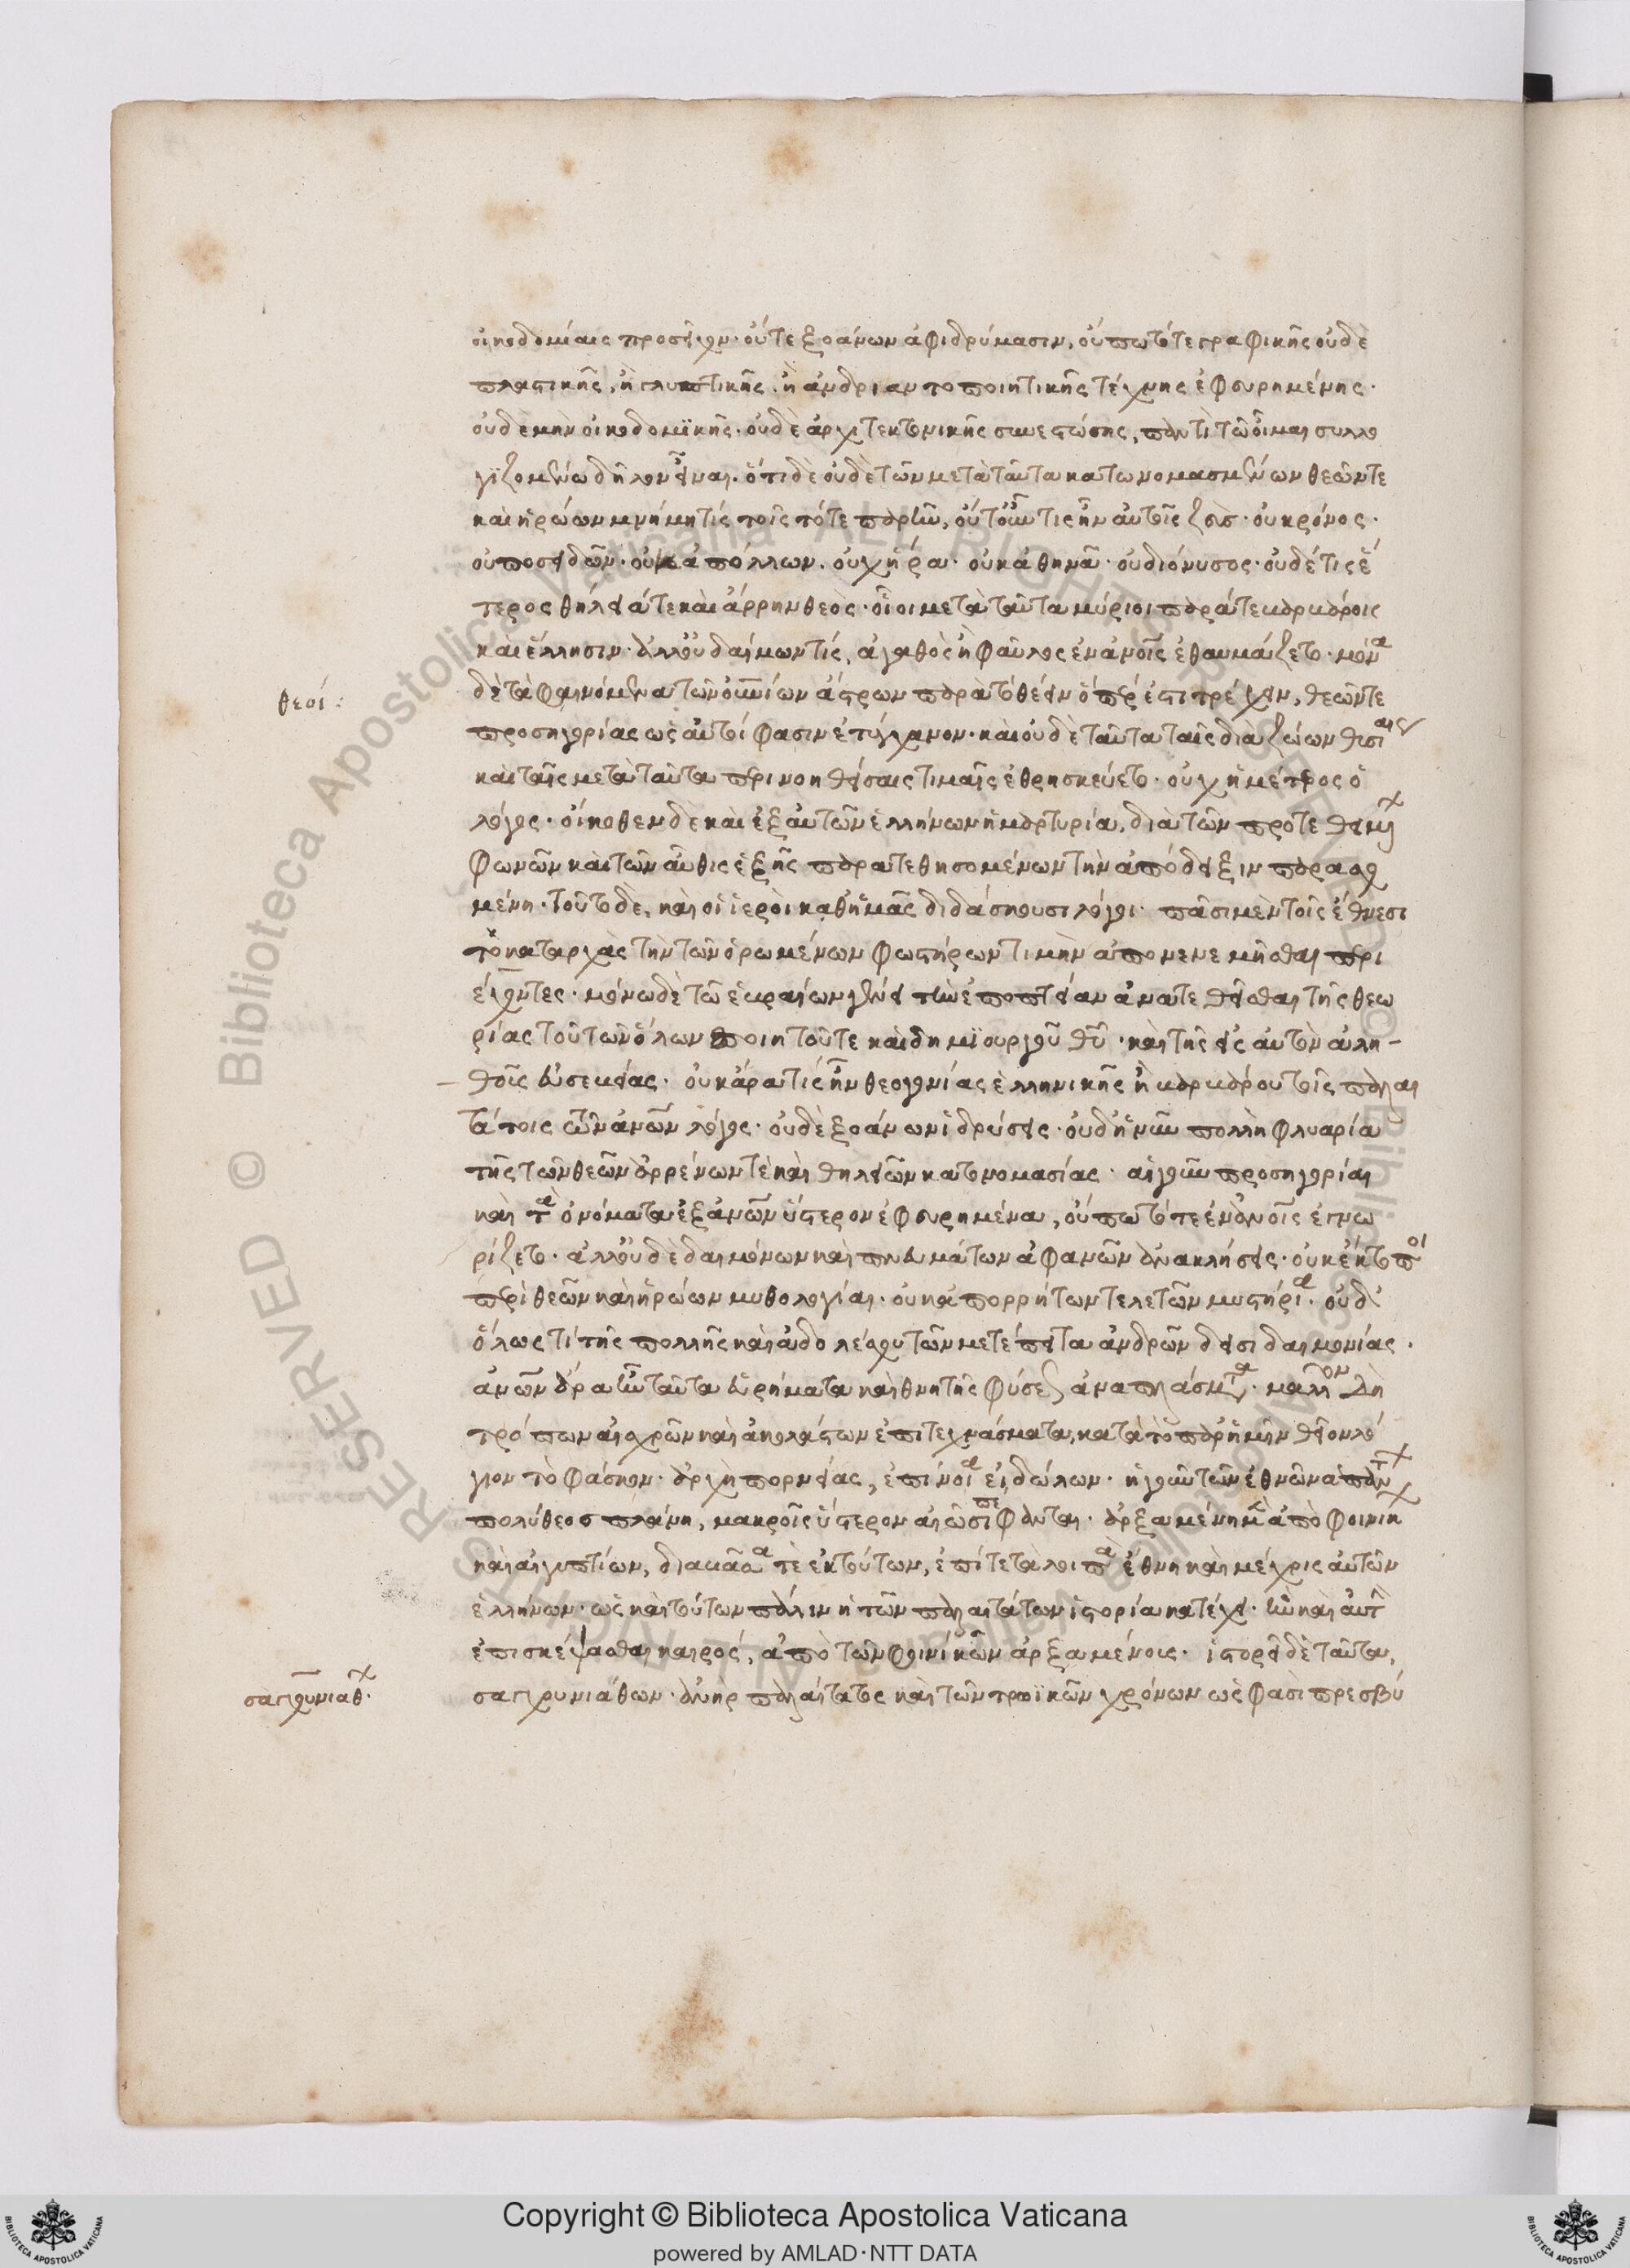 οἰκοδομίαις προσεῖχον· οὔτε ξοάνων ἀφιδρύμασιν, οὔπω τότε γραφικῆς οὐδὲ
πλαστικῆς, ἢ γλυπτικῆς, ἢ ἀνδριαντοποιητικῆς τέχνης ἐφευρημένης·
οὐδὲ μὴν οἰκοδομϊκῆς· οὐδὲ ἀρχιτεκτονικῆς συνεστώσης, παντί τω οἶμαι συλλο
γϊζομένω δῆλον εἶναι. ὅτι δὲ οὐδὲ τῶν μετὰ ταῦτα κατωνομασμένων θεῶν τε
καὶ ἡρώων μνήμη τίς τοῖς τότε παρῆν, οὔτ' οὖν τις ἦν αὐτοῖς ζεὺς· οὐ κρόνος·
οὐ ποσειδῶν· οὐκ ἀπόλλων. οὐχ ἥρα· οὐκ ἀθηνᾶ· οὐ διόνυσος· οὐδέ τις ἕ
τερος θήλειά τε καὶ ἄρρην θεὸς· οἷοι μετὰ ταῦτα μύριοι παρά τε βαρβάροις
καὶ ἕλλησιν· ἀλλ' οὐ δαίμων τίς, ἀγαθὸς ἢ φαῦλος ἐν ἀνοῖς ἐθαυμάζετο· μόνα
δὲ τὰ φαινόμενα τῶν οὐνίων ἄστρων παρὰ τὸ θέειν ὅπερ ἐστὶ τρέχειν, θεῶν τε
θεοί:
προσηγορίας ὡς αὐτοί φασιν ἐτύγχανον· καὶ οὐδὲ ταῦτα ταῖς διὰ ζώων θυσίαις
καὶ ταῖς μετὰ ταῦτα περινοηθείσαις τιμαῖς ἐθρησκεύετο· οὐχ ἡμέτερος ὁ
λόγος· οἴκοθεν δὲ καὶ ἐξ αὐτῶν ἑλλήνων ἡ μαρτυρία, διὰ τῶν προτεθειμένων
φωνῶν καὶ τῶν αὖθις ἑξῆς παρατεθησομένων τὴν ἀπόδειξιν παρασχο
μένη· τοῦτο δὲ, καὶ οἱ ἱεροὶ καθ' ἡμᾶς διδάσκουσι λόγοι· πᾶσι μὲν τοῖς ἔθνεσι
τὸ καταρχὰς τὴν τῶν ὁρωμένων φωστήρων τιμὴν ἀπονενεμῆσθαι περι
έχοντες· μόνω δὲ τῶ ἑβραίων γένει τὴν ἐποπτείαν ἀνατεθεῖσθαι τῆς θεω
ρίας τοῦ τῶν ὅλων ποιητοῦ τε καὶ δημϊουργοῦ θῦ· καὶ τῆς εἰς αὐτὸν ἀλη-
θοῦς εὐσεβείας· οὐκ ἄρα τίς ἦν θεογονίας ἑλληνικῆς ἢ βαρβάρου τοῖς παλαι
τάτοις τῶν ἀνῶν λόγος· οὐδὲ ξοάνων ἱδρύσεις· οὐδ' ἡ νῦν πολλὴ φλυαρία
τῆς τῶν θεῶν ἀρρένων τὲ καὶ θηλειῶν κατονομασίας· αἱ γοῦν προσηγορίαι
καὶ τὰ ὀνόματα ἐξ ἀνῶν ὕστερον ἐφευρημένα, οὔπω τότε ἐν ἀνοῖς ἐγνω
ρίζετο· ἀλλ' οὐδὲ δαιμόνων καὶ πνευμάτων ἀφανῶν ἀνακλήσεις· οὐκ ἔκτοποι
περὶ θεῶν καὶ ἡρώων μυθολογίαι· οὐκ ἀπορρήτων τελετῶν μυστήρια· οὐδ'
ὅλως τί τῆς πολλῆς καὶ ἀδολέσχου τῶν μετέπειτα ἀνδρῶν δεισιδαιμονίας·
ἀνῶν ἄρα ἦν ταῦτα εὑρήματα καὶ θνητῆς φύσεως ἀναπλάσματα· μᾶλλον δὲ
τρόπων αἰσχρῶν καὶ ἀκολάστων ἐπιτεχνάσματα, κατὰ τὸ παρ' ἡμῖν θεῖον λό
γιον τὸ φάσκον· ἀρχὴ πορνείας, ἐπίνοια εἰδώλων· ἡ γοῦν τῶν ἐθνῶν ἁπάντων
πολύθεος πλάνη, μακροῖς ὕστερον αἰῶσι πέφανται· ἀρξαμένη μὲν ἀπὸ φοινίκων
καὶ αἰγυπτίων, διαβᾶσα τὲ ἐκ τούτων, ἐπί τε τὰ λοιπὰ ἔθνη καὶ μέχρις αὐτῶν
ἑλλήνων· ὡς καὶ τούτων πάλιν ἡ τῶν παλαιτάτων ἱστορία κατέχει· ἣν καὶ αὐτὴν
ἐπισκέψασθαι καιρός, ἀπὸ τῶν φοινίκων ἀρξαμένοις· ἱστορεῖ δὲ ταῦτα,
σαγχουνιάθων·
σαγχουνιάθων· ἀνὴρ παλαίτατος καὶ τῶν τρωϊκῶν χρόνων ὡς φασὶ πρεσβύ